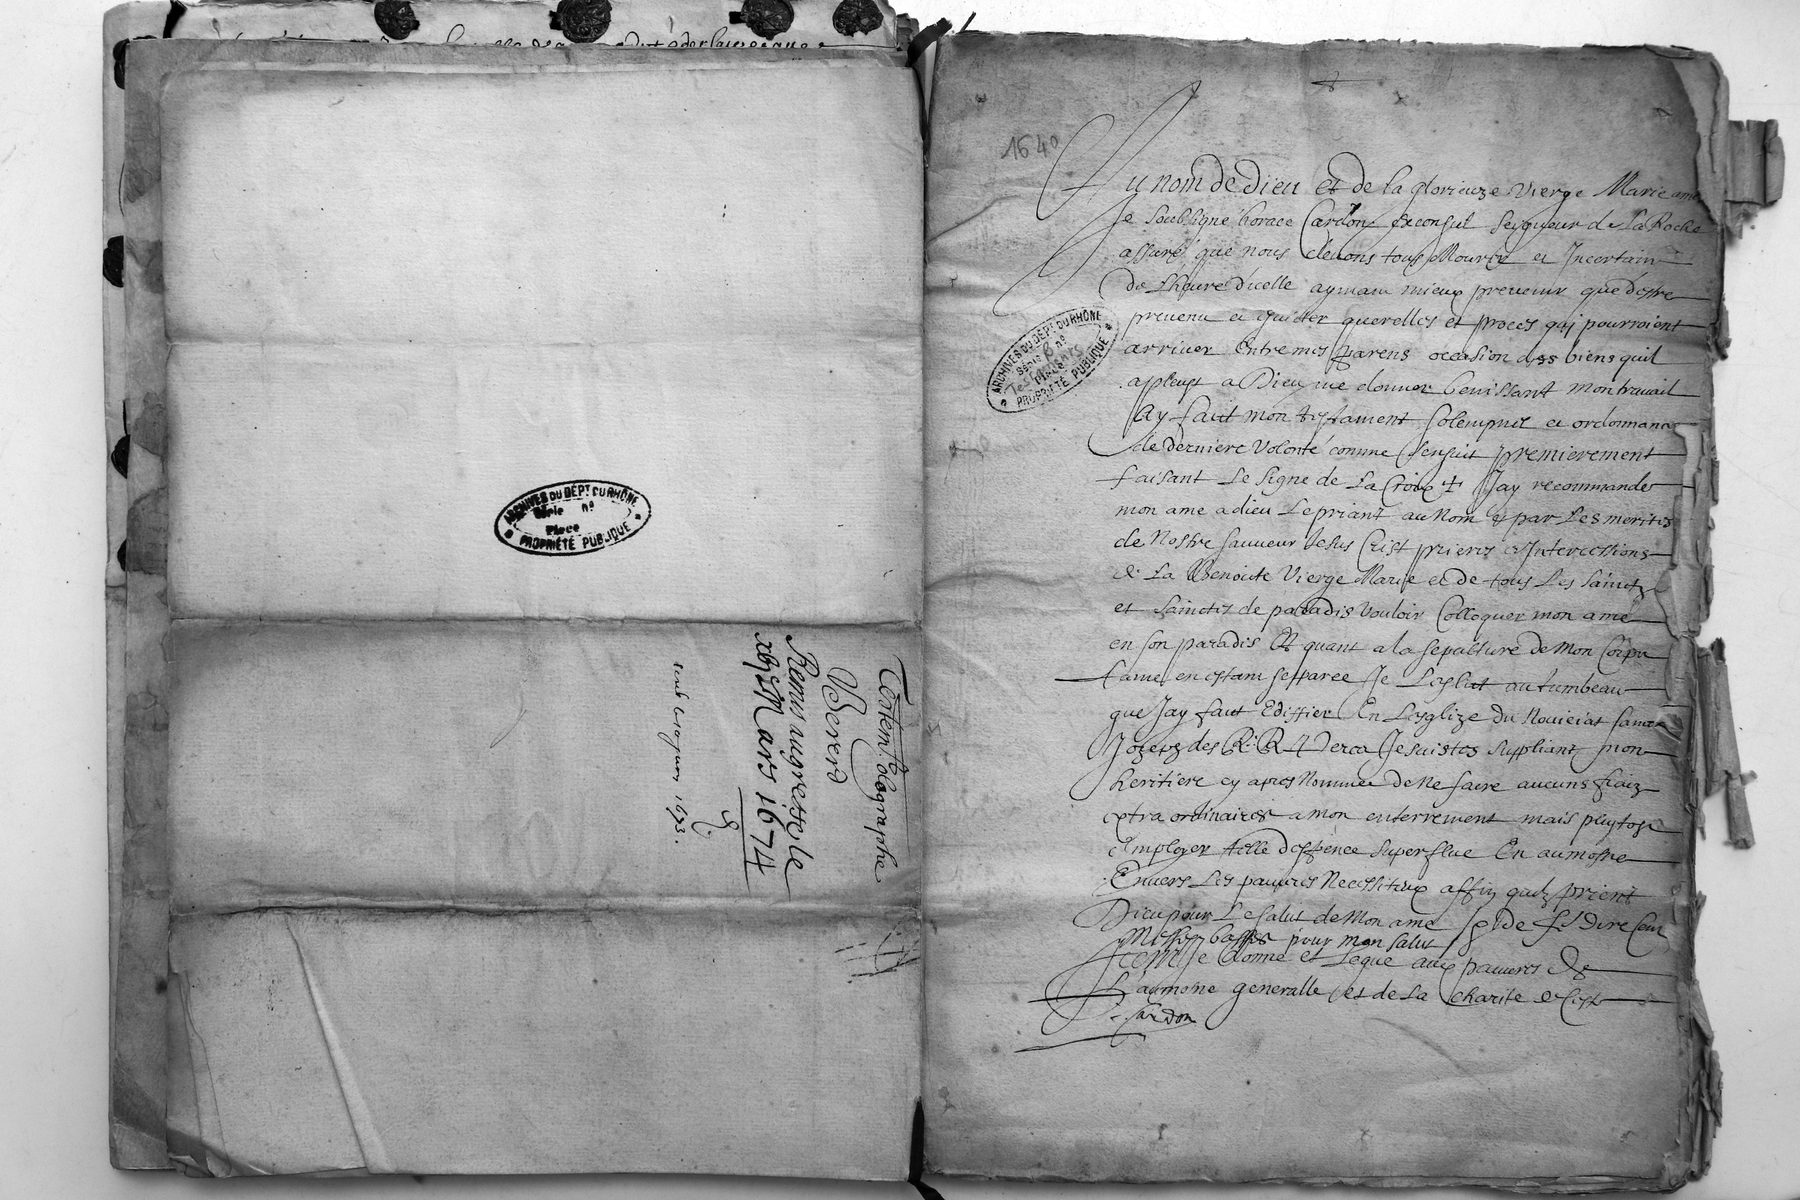 ARCHIVES DU DÉPT DU RHÔNE
Série n°
Pièce
PROPRIÉTÉ PUBLIQUE
Testemt olographe
Remis au greffe le
Mars 1674
1673.
1640
ARCHIVES DU DÉPT DU RHÔNE
Série B n°
Testaments
Pièce
PROPRIÉTÉ PUBLIQUE
Au nom de Dieu et de la glorieuze Vierge Marie amen
Je soubsigné horace Cardon exconsul seigneur de la Roche
assuré que nous devons tous Mourir et Incertain
de lheure d'icelle aymant mieux prevenir que destre
prevenu et esviter querelles et proces qui pourroient
arriver Entre mes parens occasion des biens quil
a pleust a Dieu me donner benissant mon travail
Ay faict mon testament solempnel et ordonnance
de derniere Volonté comme sensuit premierement
faisant Le signe de La Croix + Jay recommandé
mon ame a dieu Le priant au Nom et par Les merites
de Nostre sauveur Jesus Crist prieres et Intercessions
de La Benoicte Vierge Marie et de tous Les saincts
et sainctes de paradis vouloir Colloquer mon ame
en son paradis Et quant a la sepulture de Mon Corps
Lame en estant separee Je Leslist au tumbeau
que Jay faict Ediffier En Lesglize du Noviciat sainct
Jozeph des R. R. Jesuistes suppliant mon
heritiere cy apres Nommee de Ne faire aucuns fraiz
extraordinaires a mon enterrement mais plustost
Employer telle despence superflue En aumosne
Envers Les pauvres Necessiteux affin quilz prient
Dieu pour Le salut de Mon ame et de fe Dire Cent
Messes basses pour mon salut
Item Je donne et Legue aux pauvres de
Laumosne generalle et de La Charité de Ceste
Cardon